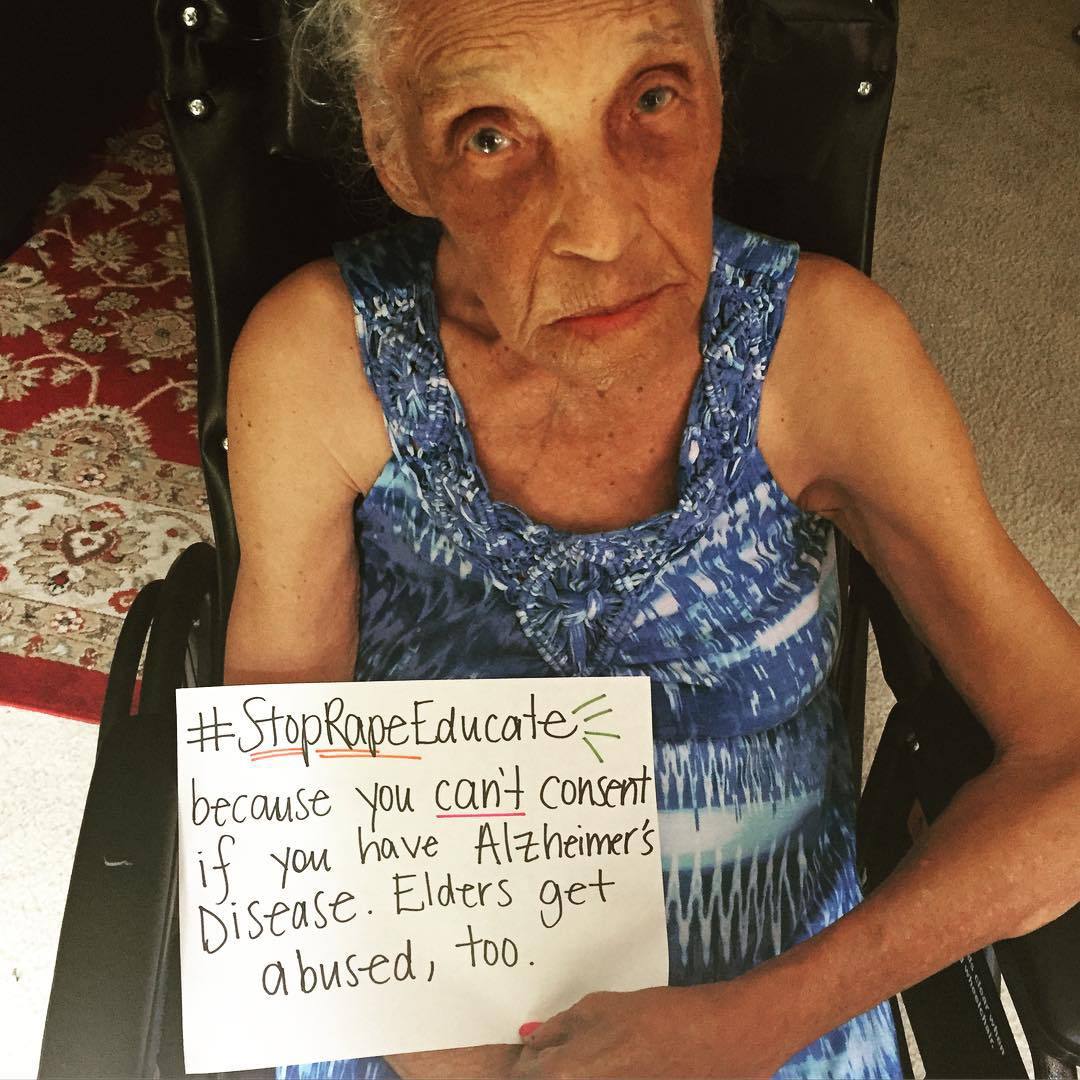 #StopRapeEducate
because you can't consent
if you have Alzheimer's
Disease. Elders get
abused, too.